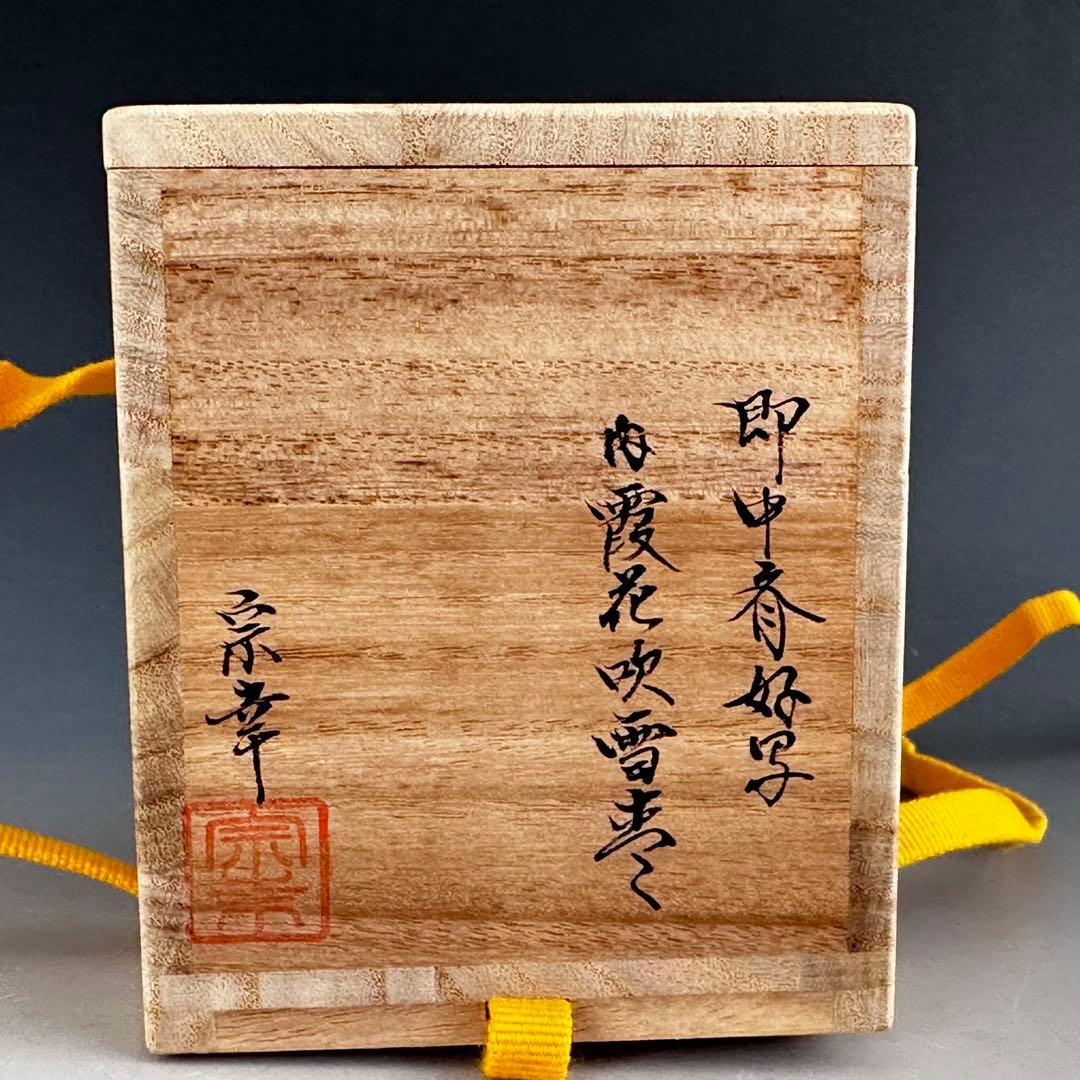 即中斎好写
内霞花吹雪棗
宗幸